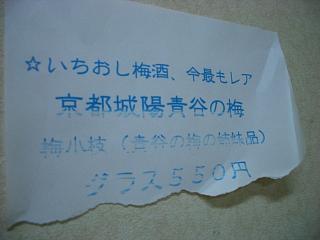 ☆いちおし梅酒、今最もレア
京都城陽青谷の梅
梅小枝（青谷の梅の姉妹品）
グラス５５０円